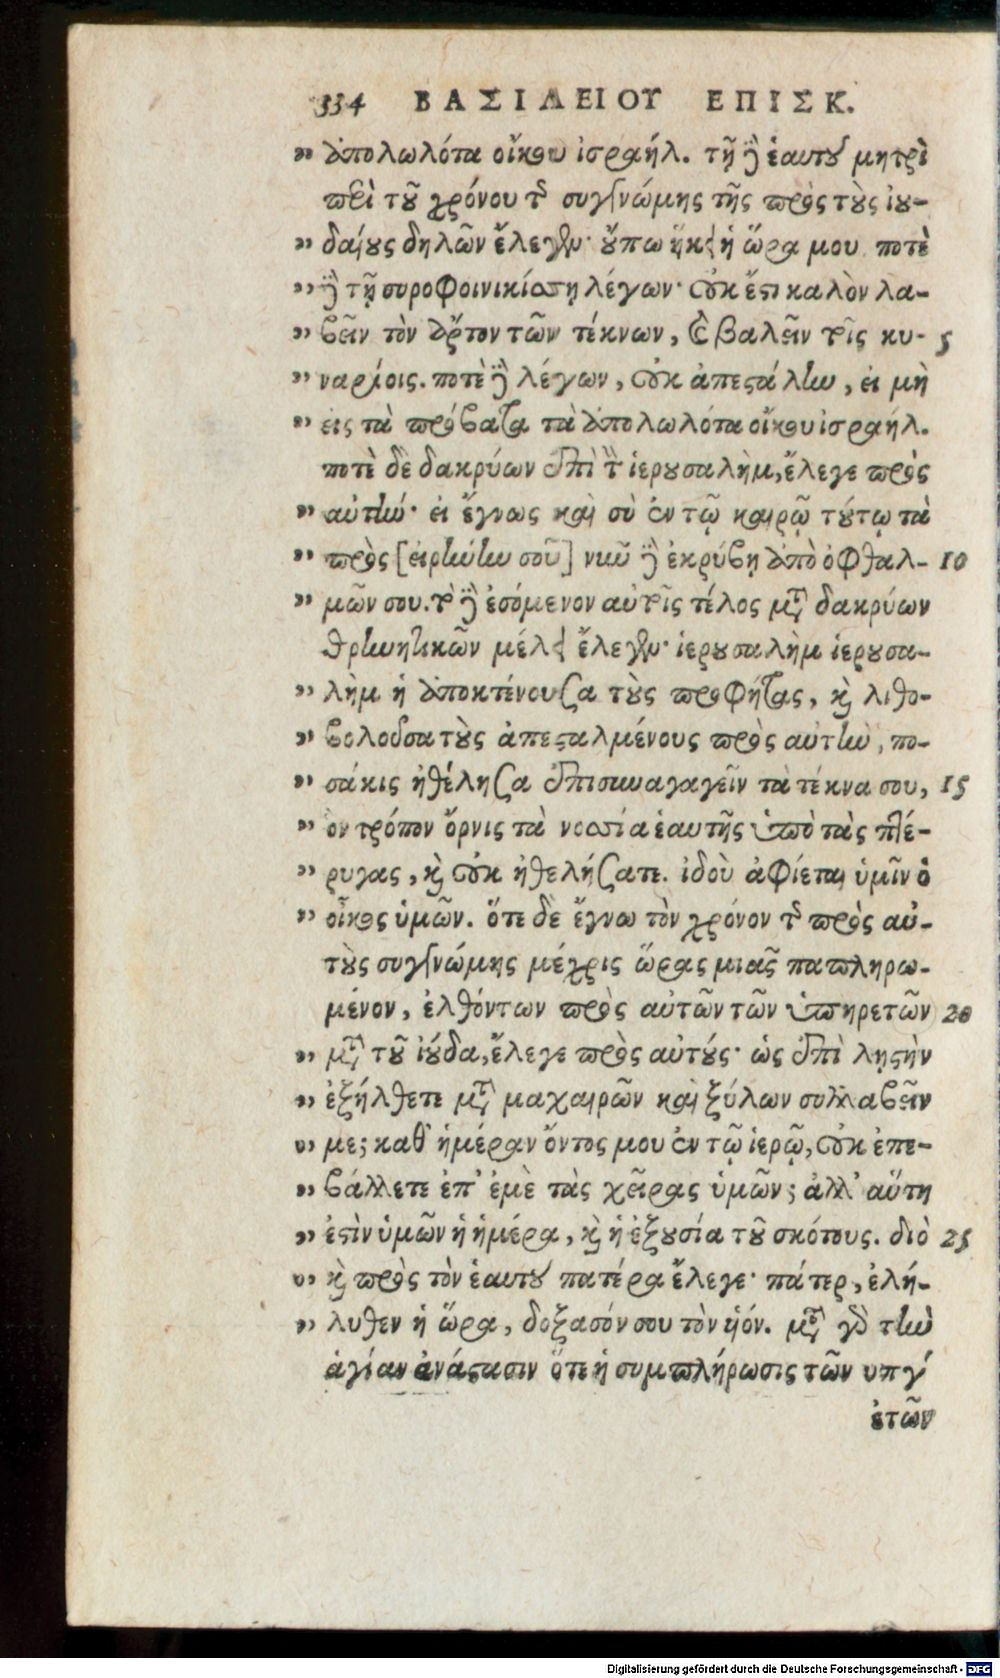 334 ΒΑΣΙΛΕΙΟΥ ΕΠΙΣΚ.
„ ἀπολωλότα οἴκου ἰσραήλ. τῇ δὲ ἑαυτοῦ μητρὶ
περὶ τοῦ χρόνου τῆς συγγνώμης τῆς πρὸς τοὺς ἰου-
„ δαίους δηλῶν ἔλεγεν· οὔπω ἥκει ἡ ὥρα μου. ποτὲ
„ δὲ τῇ συροφοινικίσσῃ λέγων· οὐκ ἔστι καλὸν λα-
„ βεῖν τὸν ἄρτον τῶν τέκνων, καὶ βαλεῖν τοῖς κυ- 5
„ ναρίοις. ποτὲ δὲ λέγων, οὐκ ἀπεστάλην, εἰ μὴ
„ εἰς τὰ πρόβατα τὰ ἀπολωλότα οἴκου ἰσραήλ.
ποτὲ δὲ δακρύων ἐπὶ τὴν ἱερουσαλὴμ, ἔλεγε πρὸς
„ αὐτήν· εἰ ἔγνως καὶ σὺ ἐν τῷ καιρῷ τούτῳ τὰ
„ πρὸς [εἰρήνην σοῦ] νῦν δὲ ἐκρύβη ἀπὸ ὀφθαλ- 10
„ μῶν σου. τὸ δὲ ἐσόμενον αὐτοῖς τέλος μετὰ δακρύων
θρηνητικῶν μέλει ἔλεγεν· ἱερουσαλὴμ ἱερουσα-
„ λὴμ ἡ ἀποκτένουσα τοὺς προφήτας, καὶ λιθο-
„ βολοῦσα τοὺς ἀπεσταλμένους πρὸς αὐτὴν, πο-
„ σάκις ἠθέλησα ἐπισυναγαγεῖν τὰ τέκνα σου, 15
„ ὃν τρόπον ὄρνις τὰ νοσσία ἑαυτῆς ὑπὸ τὰς πτέ-
„ ρυγας, καὶ οὐκ ἠθελήσατε. ἰδοὺ ἀφίεται ὑμῖν ὁ
„ οἶκος ὑμῶν. ὅτε δὲ ἔγνω τὸν χρόνον τῆς πρὸς αὐ-
τοὺς συγγνώμης μέχρις ὥρας μιᾶς πεπληρω-
μένον, ἐλθόντων πρὸς αὐτῶν τῶν ὑπηρετῶν 20
„ μετὰ τοῦ ἰούδα, ἔλεγε πρὸς αὐτούς· ὡς ἐπὶ λῃστὴν
„ ἐξήλθετε μετὰ μαχαιρῶν καὶ ξύλων συλλαβεῖν
„ με; καθ' ἡμέραν ὄντος μου ἐν τῷ ἱερῷ, οὐκ ἐπε-
„ βάλλετε ἐπ' ἐμὲ τὰς χεῖρας ὑμῶν; ἀλλ' αὕτη
„ ἐστὶν ὑμῶν ἡ ἡμέρα, καὶ ἡ ἐξουσία τοῦ σκότους. διὸ 25
„ καὶ πρὸς τὸν ἑαυτοῦ πατέρα ἔλεγε· πάτερ, ἐλή-
„ λυθεν ἡ ὥρα, δοξασόν σου τὸν ὑιόν. μετὰ γὰρ τὴν
ἁγίαν ἀνάστασιν ὅτε ἡ συμπλήρωσις τῶν υπγʹ
ἐτῶν
Digitalisierung gefördert durch die Deutsche Forschungsgemeinschaft - DFG